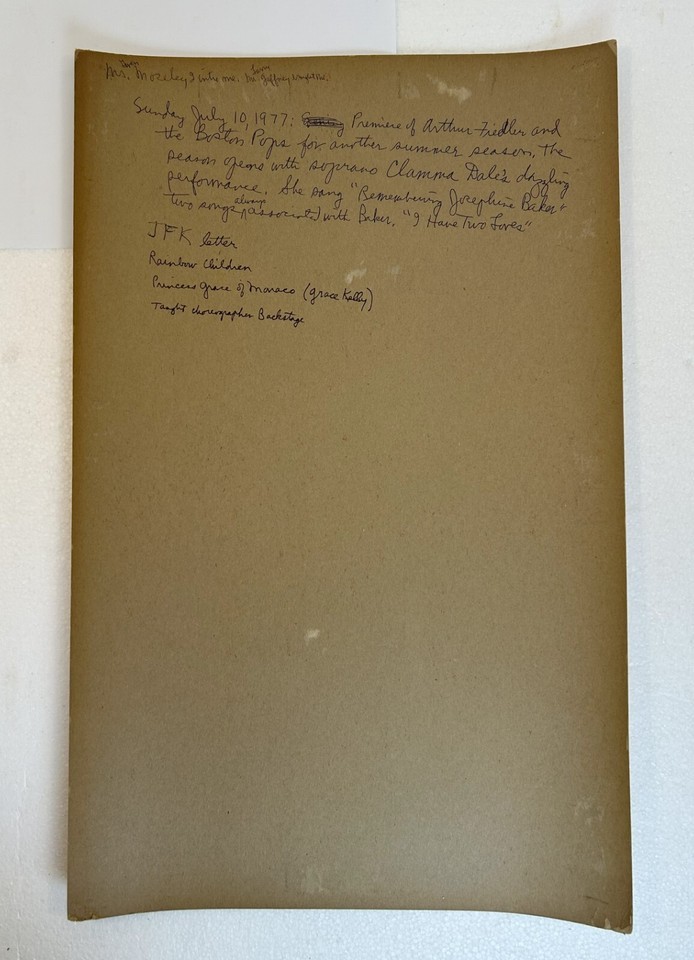 Mrs. Mozeley, I into me. Mr. Jeffrey
Sunday July 10, 1977: Premiere of Arthur Fiedler and
the Boston Pops for another summer season, The
season opens with soprano Clamma Dale's dazzling
performance. She sang "Remembering Josephine Baker" +
always
two songs associated with Baker. "I Have Two Loves"
JFK letter
Rainbow Children
Princess Grace of Monaco (Grace Kelly)
Taught choreographer Backstage